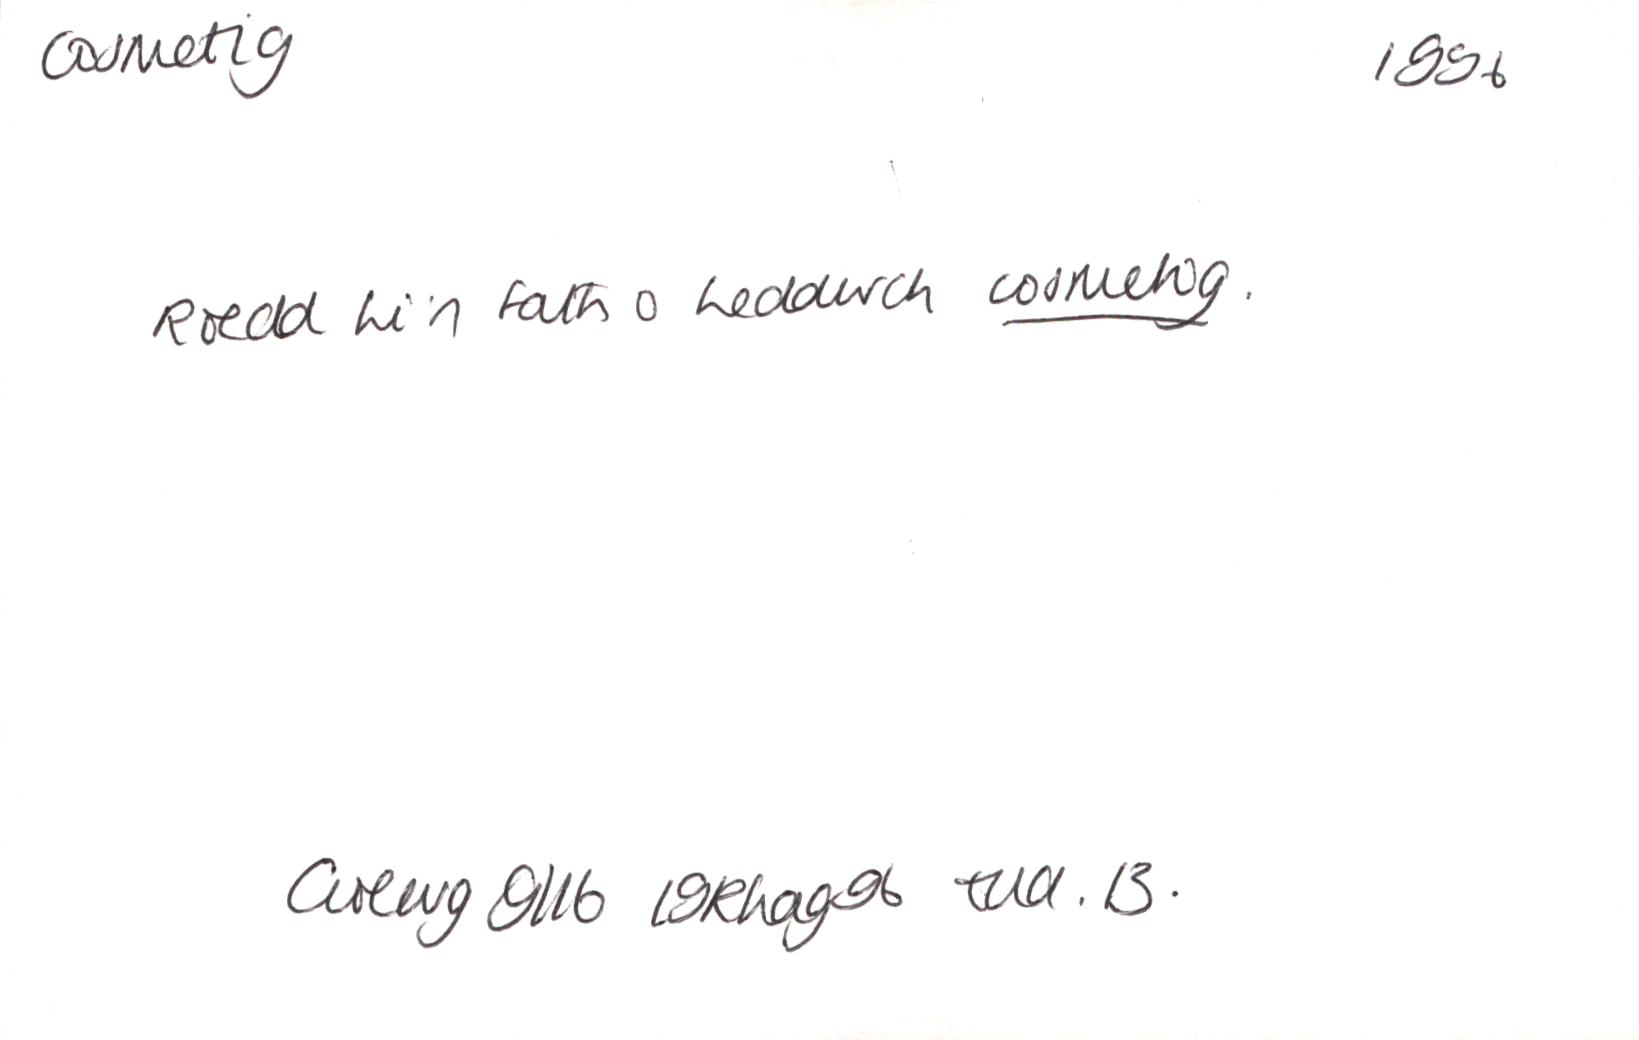 cosmetig 1996
Roedd hi'n fath o heddwch cosmetig.
Golwg 9/16 19Rhag96 tud. 13.